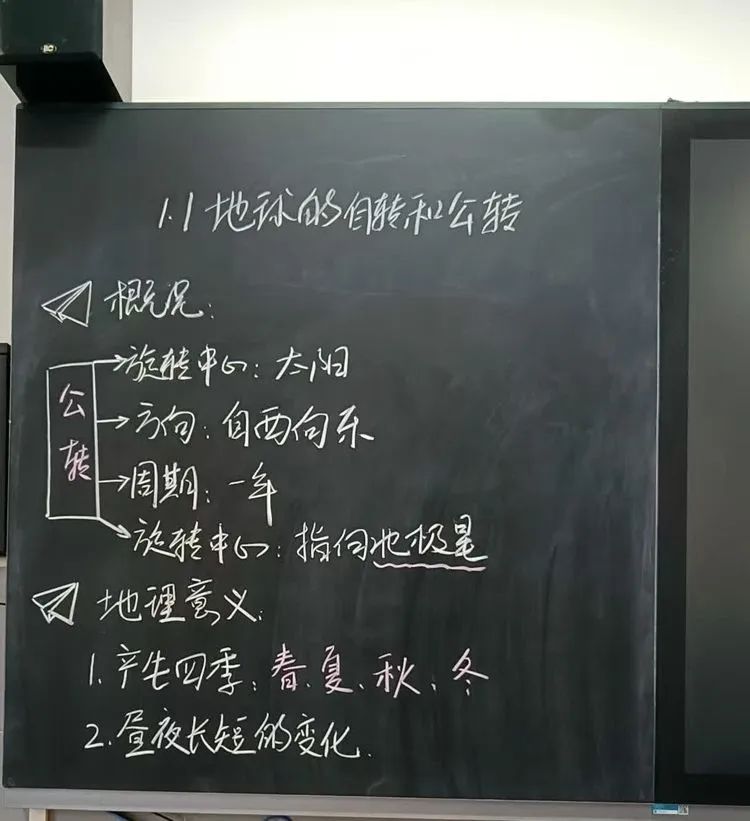 1.1 地球的自转和公转
概况：
公转
旋转中心：太阳
方向：自西向东
周期：一年
旋转中心：指向地极星
地理意义：
1.产生四季：春、夏、秋、冬
2.昼夜长短的变化.